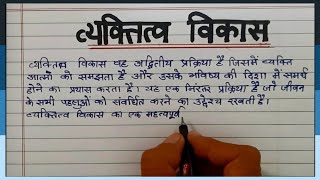 व्यक्तित्व विकास
व्यक्तित्व विकास वह अद्वितीय प्रक्रिया है जिसमें व्यक्ति
आत्मा को समझता है और उसके भविष्य की दिशा में समर्थ
होने का प्रयास करता है। यह एक निरंतर प्रक्रिया है जो जीवन
के सभी पहलुओं को संवर्धित करने का उद्देश्य रखती है।
व्यक्तित्व विकास का एक महत्वपूर्ण